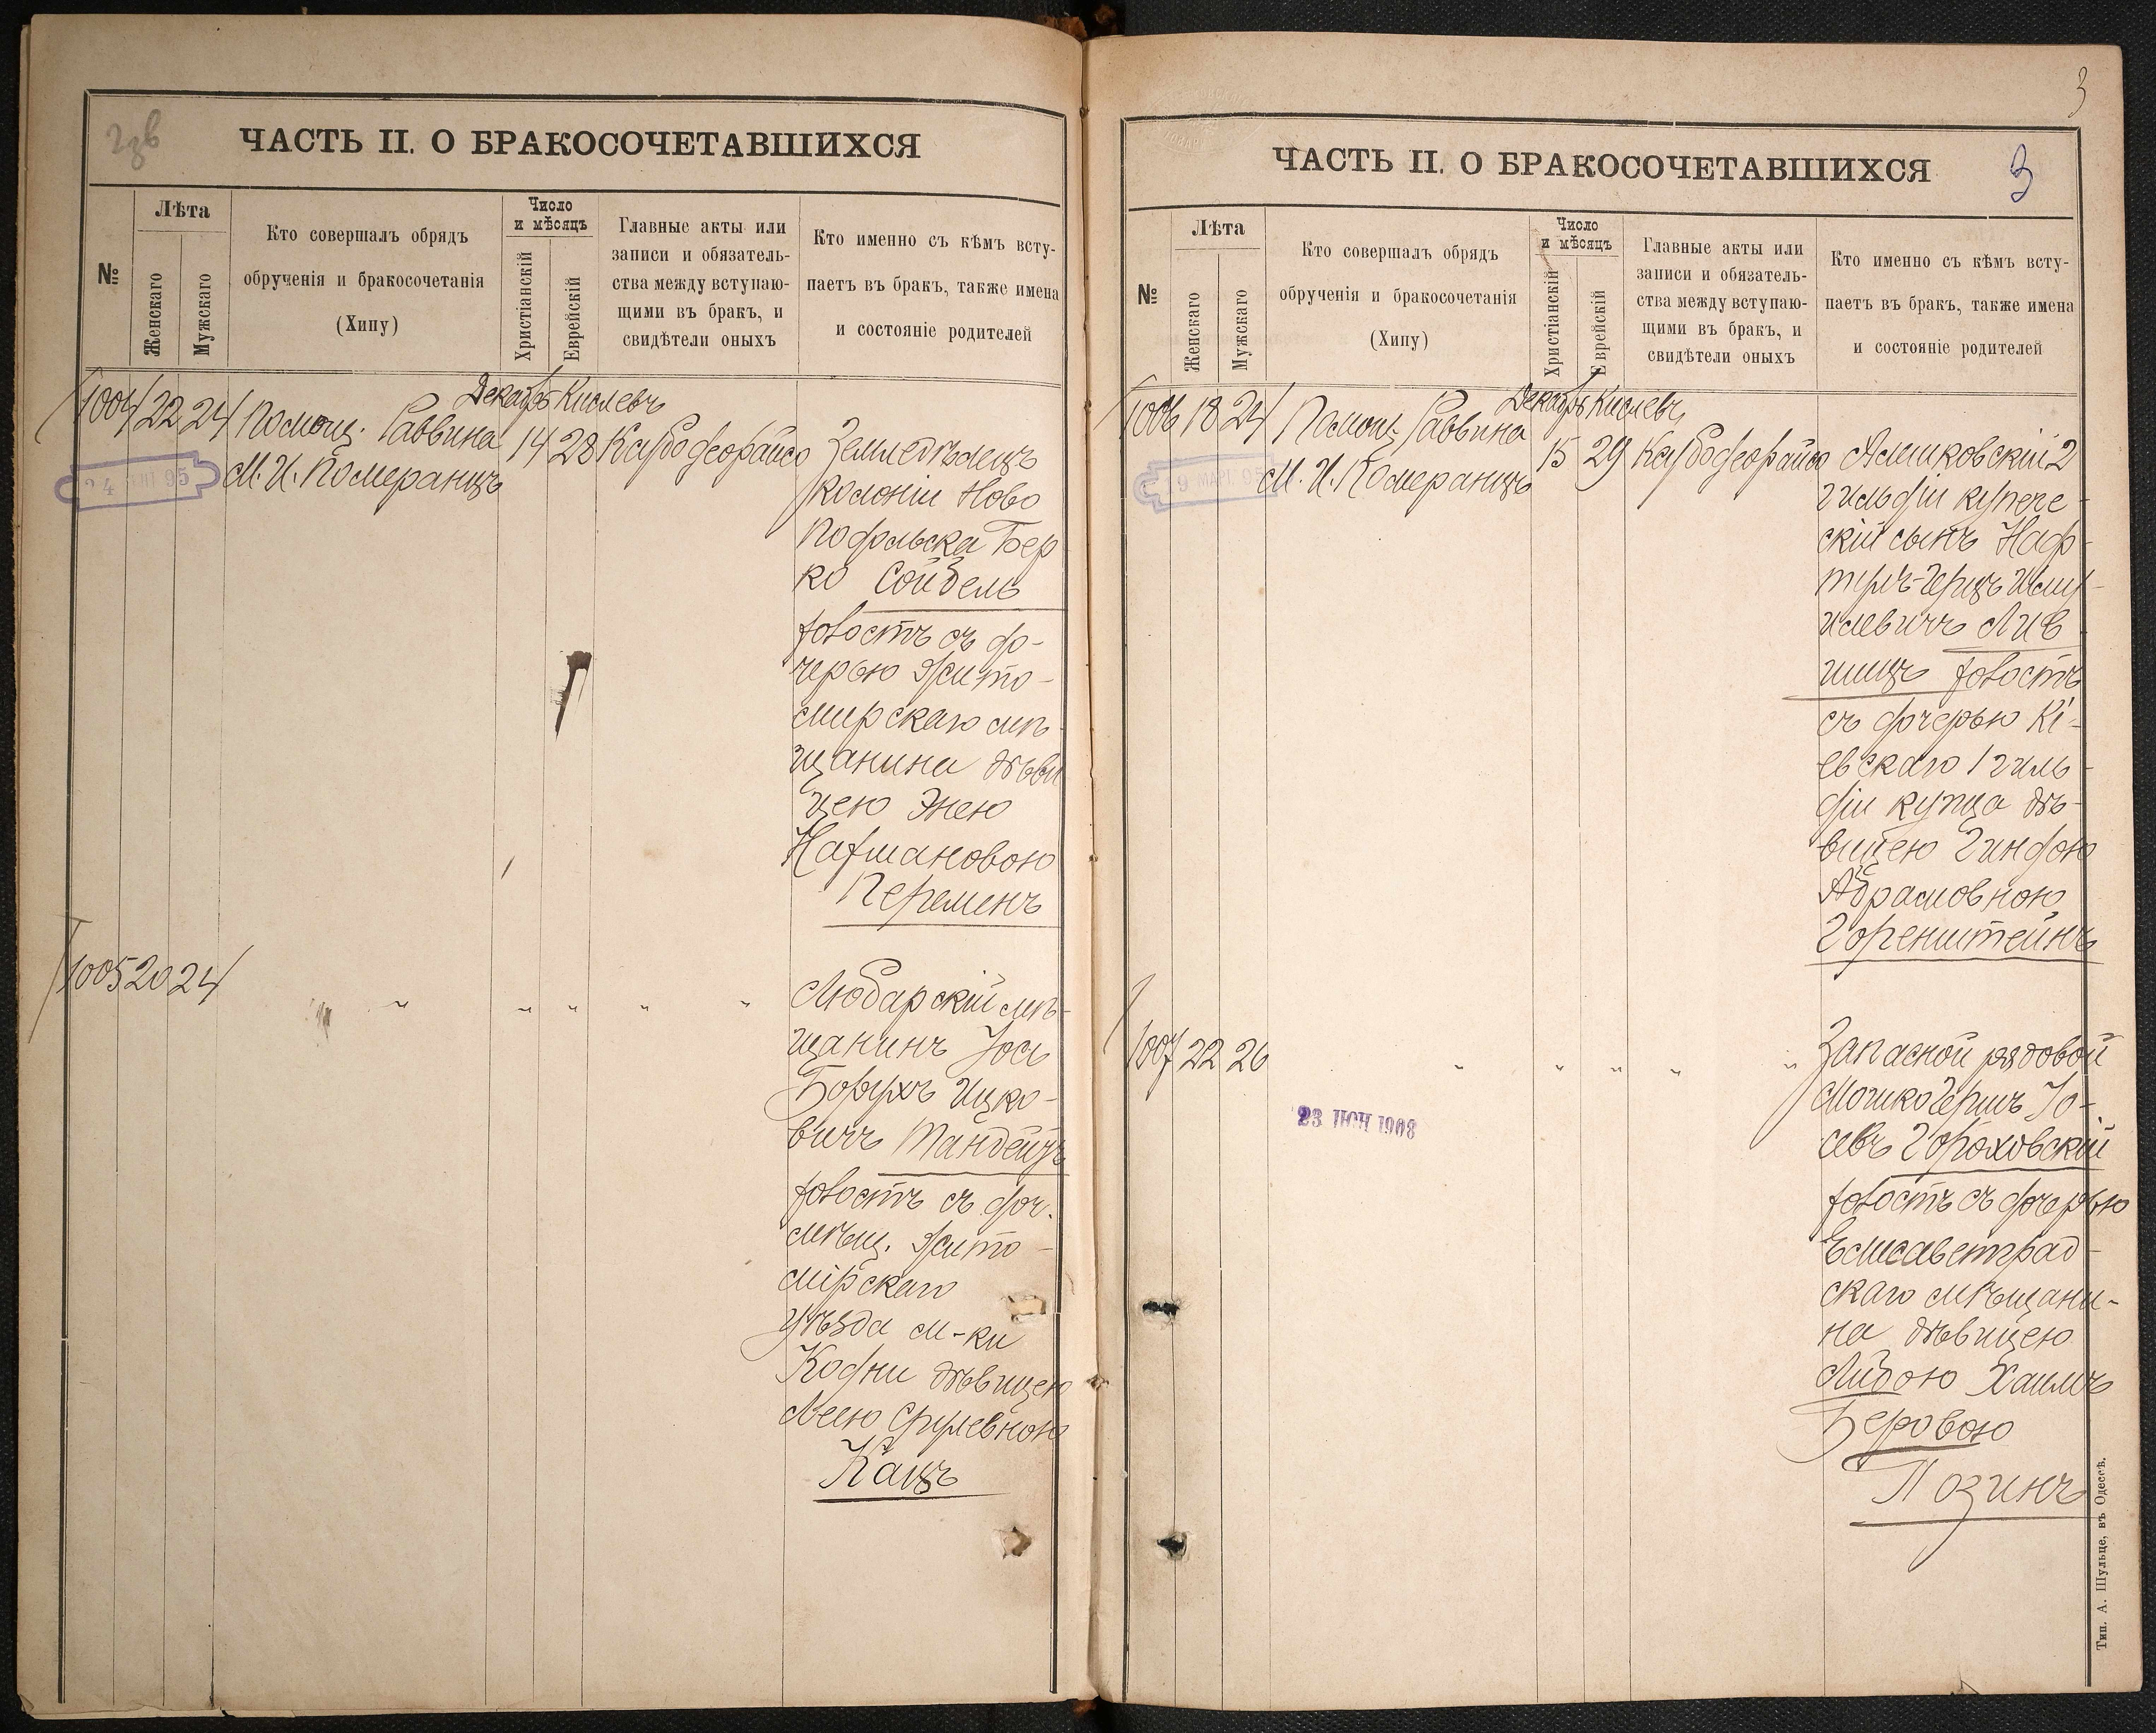 ЧАСТЬ II. О БРАКОСОЧЕТАВШИХСЯ
№
Лѣта
Женскаго
Мужскаго
Кто совершалъ обрядъ
обрученія и бракосочетанія
(Хипу)
Число
и мѣсяцъ
Христіанскій
Еврейскій
Главные акты или
записи и обязатель-
ства между вступаю-
щими въ бракъ, и
свидѣтели оныхъ
Кто именно съ кѣмъ всту-
паетъ въ бракъ, также имена
и состояніе родителей
Декабрь Кислевъ
1004 22 24 Помощ. Раввина 14 28
М. И. Померанцъ
Земледѣлецъ
колоніи Ново
Подольска Бер
ко Сойбель
холостъ съ до-
черью Жито-
мирскаго мѣ-
щанина дѣви
цею Энею
Нахмановою
Перельменъ
1005 20 24 " " " " "
Любарскій мѣ-
щанинъ Іось
Борухъ Ицко-
вичъ Тандейтъ
холостъ съ доч.
мѣщ. Жито-
мірскаго
уѣзда м-ки
Кодни дѣвицею
Леею Срулевною
Кацъ
3
ЧАСТЬ II. О БРАКОСОЧЕТАВШИХСЯ
3
№
Лѣта
Женскаго
Мужскаго
Кто совершалъ обрядъ
обрученія и бракосочетанія
(Хипу)
Число
и мѣсяцъ
Христіанскій
Еврейскій
Главные акты или
записи и обязатель-
ства между вступаю-
щими въ бракъ, и
свидѣтели оныхъ
Кто именно съ кѣмъ всту-
паетъ въ бракъ, также имена
и состояніе родителей
Декабрь Кислевъ
1006 18 24 Помощ. Раввина 15 29
М. И. Померанцъ
2
гильдіи купече-
скій сынъ Наф-
тулъ-Герцъ Шму-
илевичъ Лив
шицъ холостъ
съ дочерью Кі-
евскаго 1 гиль-
діи купца дѣ-
вицею Гиндою
Абрамовною
Горенштейнъ
1007 22 26 " " " " "
23 ІЮН 1908
Запасной рядовой
Мошко Гершъ Іо-
севъ Гороховскій
холостъ съ дочерью
Елисаветград-
скаго мѣщани-
на дѣвицею
Либою Хаимъ
Беровою
Позинъ
Тип. А. Шульце, въ Одессѣ.